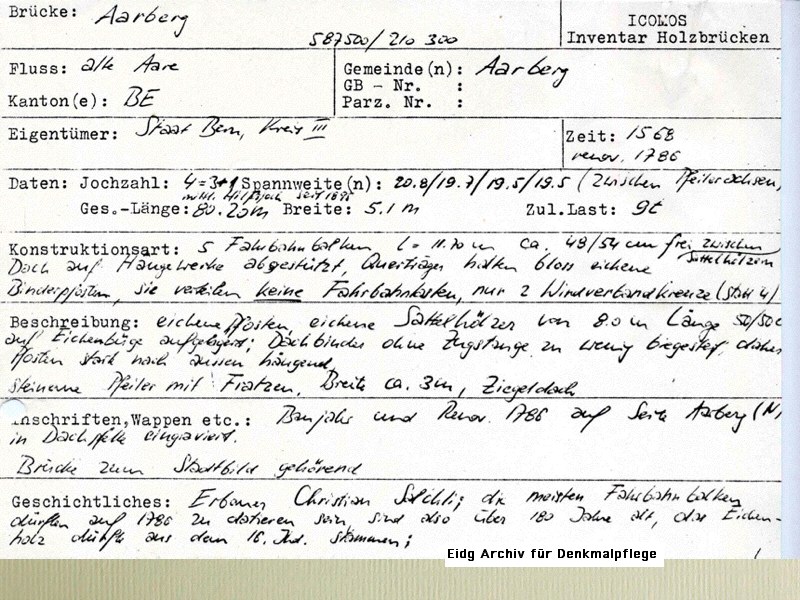 Brücke: Aarberg
587500/210 300
ICOMOS
Inventar Holzbrücken
Fluss: alte Aare
Kanton(e): BE
Gemeinde(n): Aarberg
GB - Nr. :
Parz. Nr. :
Eigentümer: Staat Bern, Kreis III
Zeit: 1568
renov. 1786
Daten: Jochzahl: 4=3+1 Spannweite(n): 20.8/19.7/19.5/19.5 (Zwischen Pfeilerachsen,
mittl. Hilfsjoch seit 1895
Ges.-Länge: 80.20m Breite: 5.1 m Zul.Last: 9t
Konstruktionsart: 5 Fahrbahnbalken, l = 11.70 m ca. 48/54 cm frei zwischen
Sattelhölzern
Dach auf Hängewerke abgestützt, Querträger halten bloss eichene
Binderpfosten, sie verteilen keine Fahrbahnlasten, nur 2 Windverbandkreuze (statt 4)
Beschreibung: eichene Pfosten, eichene Sattelhölzer von 8.0 m Länge 50/50c
auf Eichenbüge aufgelagert; Dachbinder ohne Zugstange, zu wenig biegesteif, daher
Pfosten stark nach aussen hängend,
steinerne Pfeiler mit Fratzen, Breite ca. 3m, Ziegeldach
Inschriften,Wappen etc.: Baujahr und Renov. 1786 auf Seite Aarberg (N)
in Dachpfette eingraviert.
Brücke zum Stadtbild gehörend
Geschichtliches: Erbauer Christian Salchli; die meisten Fahrbahnbalken
dürften auf 1786 zu datieren sein, sind also über 180 Jahre alt, das Eichen-
holz dürfte aus dem 16. Jhd. stammen;
Eidg Archiv für Denkmalpflege